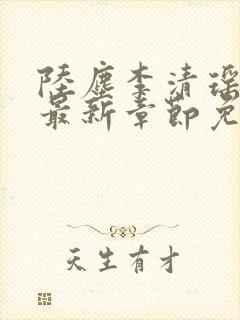 陆尘李清瑶
最新章节免
天生有才